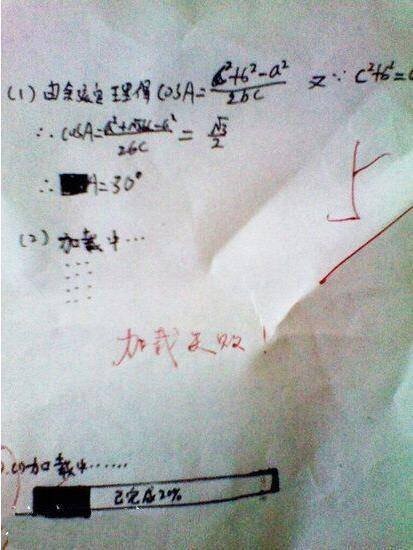 (1) 由余弦定理得 cosA = (c²+b²-a²)/2bc 又∵ c²+b²=a
∴ cosA = (a²+√3bc-a²)/2bc = √3/2
∴ A=30°
(2) 加载中…
加载失败!
(1)加载中……
已完成20%